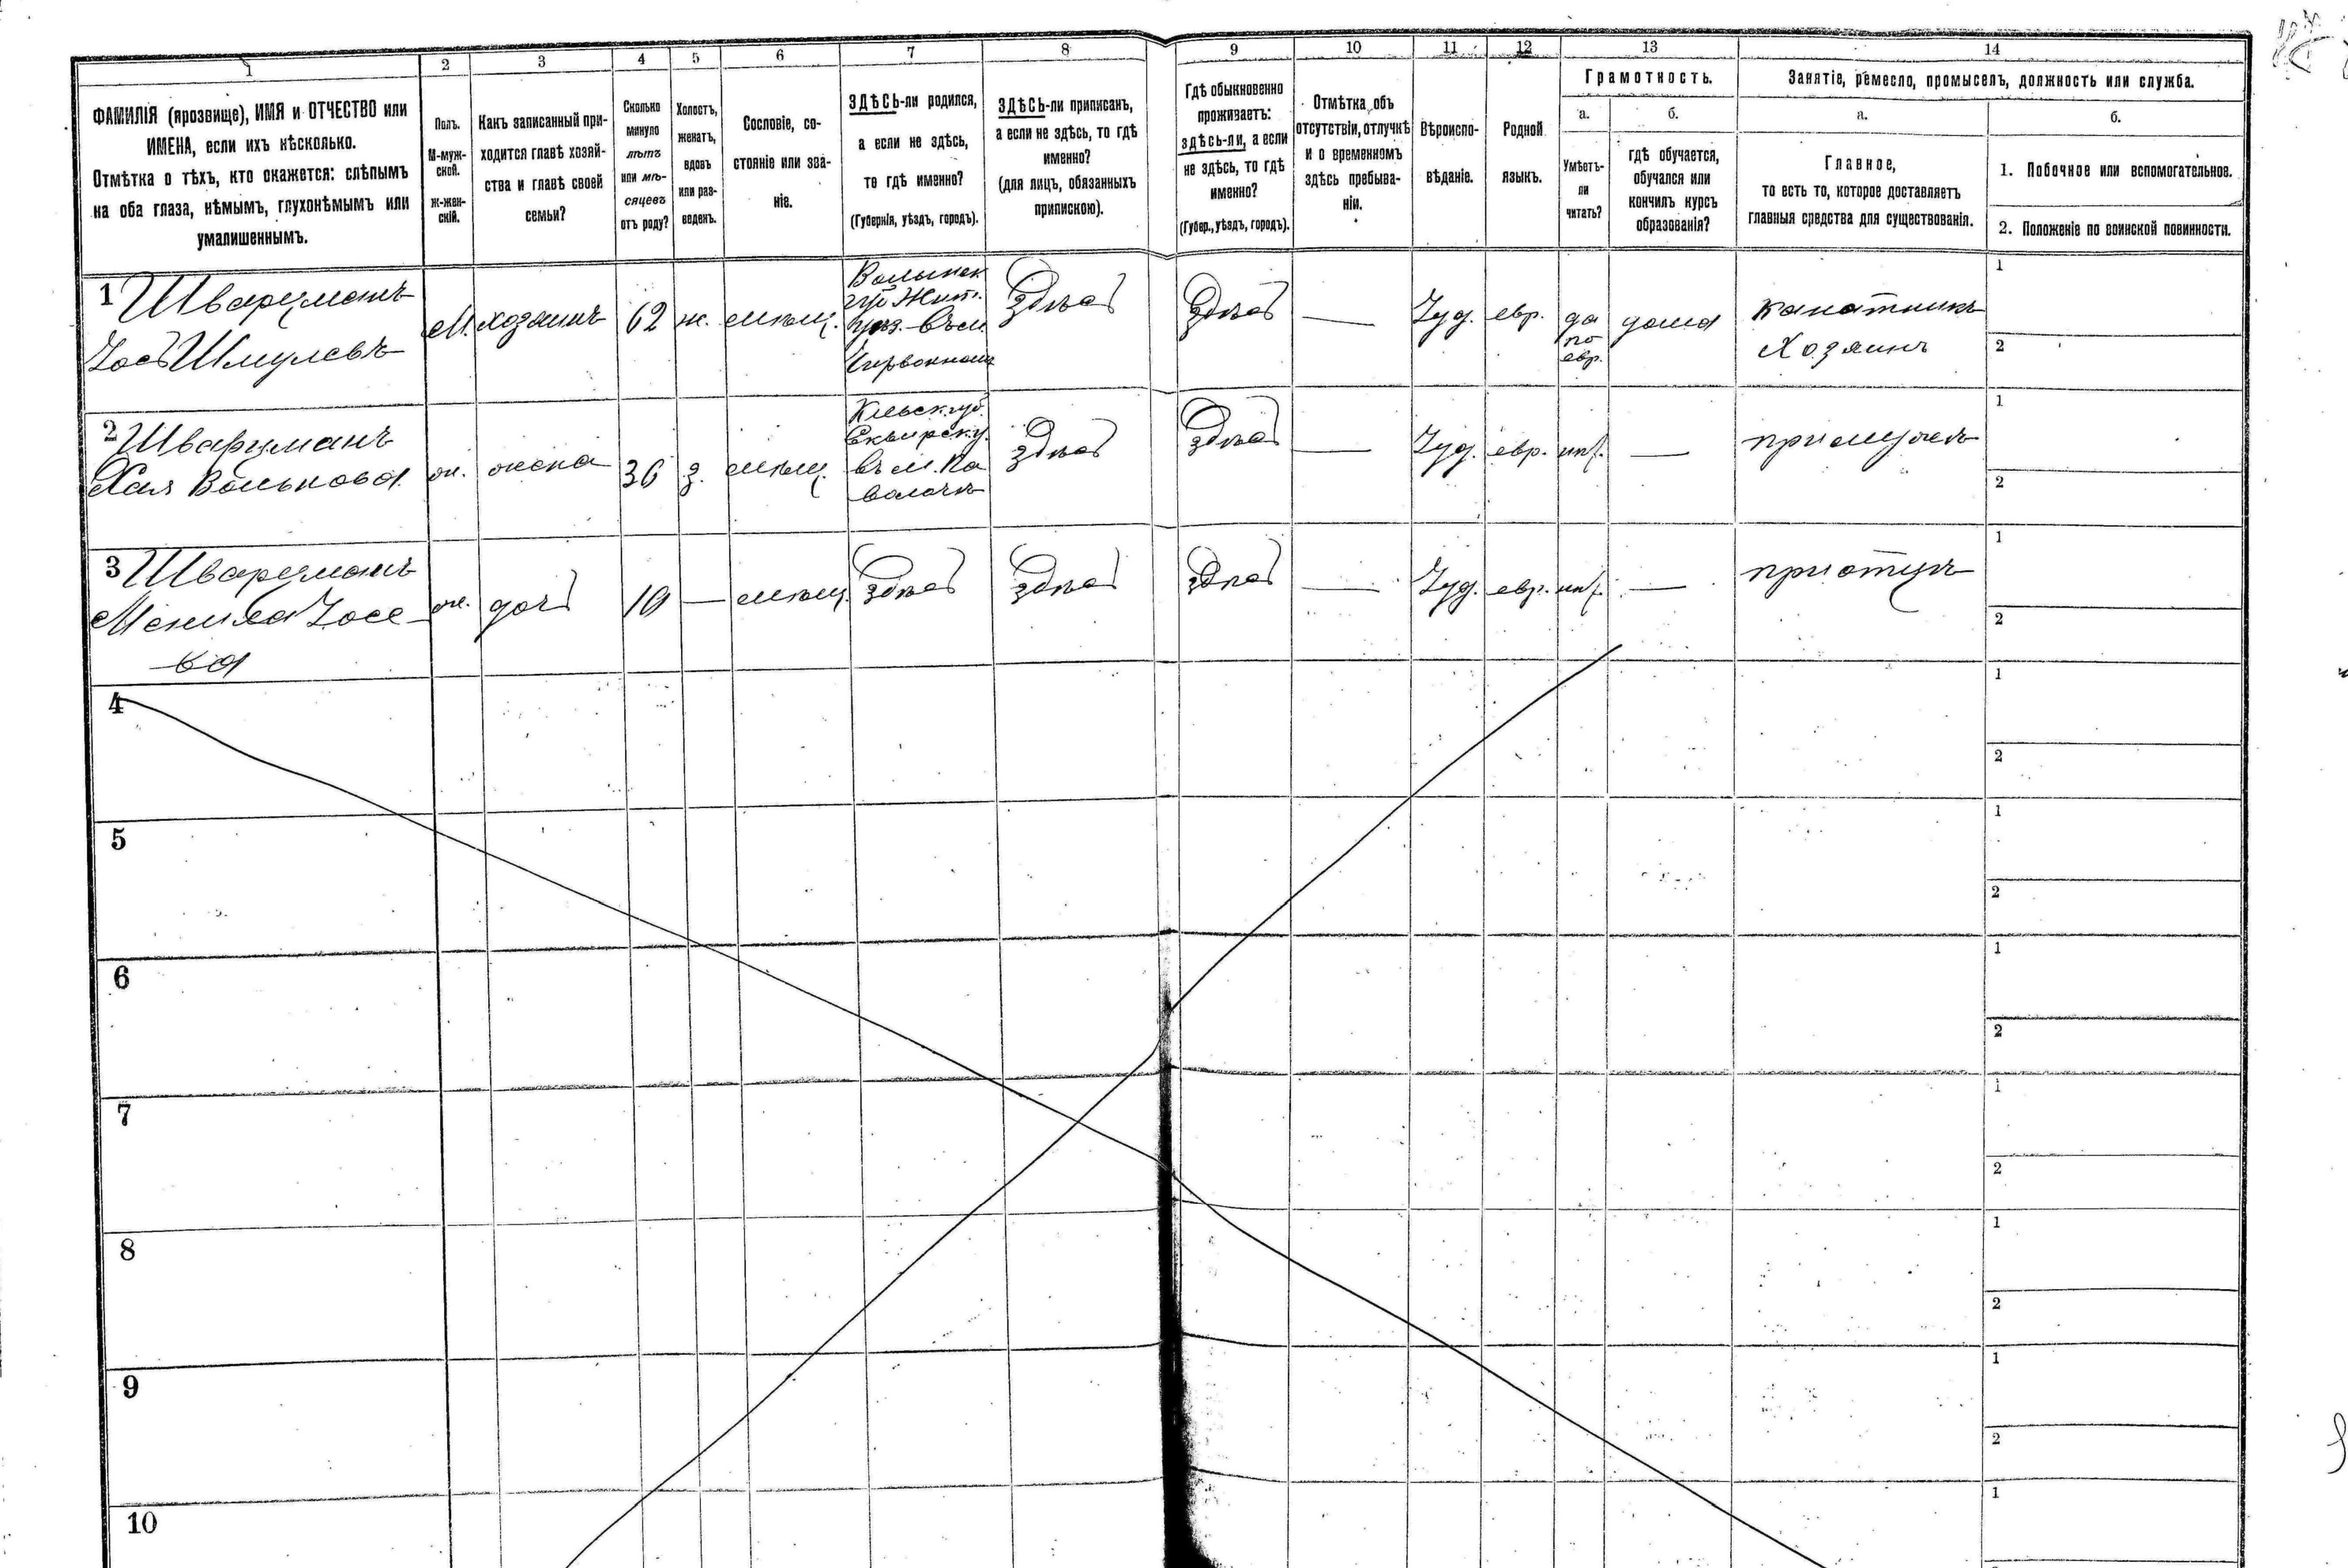 1
2
3
4
5
6
7
8
9
10
11
12
13
14
ФАМИЛІЯ (прозвище), ИМЯ и ОТЧЕСТВО или
ИМЕНА, если ихъ нѣсколько.
Отмѣтка о тѣхъ, кто окажется: слѣпымъ
на оба глаза, нѣмымъ, глухонѣмымъ или
умалишеннымъ.
Полъ.
М-муж-
ской.
ж-жен-
скій.
Какъ записанный при-
ходится главѣ хозяй-
ства и главѣ своей
семьи?
Сколько
минуло
лѣтъ
или мѣ-
сяцевъ
отъ роду?
Холостъ,
женатъ,
вдовъ
или раз-
веденъ.
Сословіе, со-
стояніе или зва-
ніе.
ЗДѢСЬ-ли родился,
а если не здѣсь,
то гдѣ именно?
(Губернія, уѣздъ, городъ).
ЗДѢСЬ-ли приписанъ,
а если не здѣсь, то гдѣ
именно?
(для лицъ, обязанныхъ
припискою).
Гдѣ обыкновенно
проживаетъ:
здѣсь-ли, а если
не здѣсь, то гдѣ
именно?
(Губер., уѣздъ, городъ).
Отмѣтка объ
отсутствіи, отлучкѣ
и о временномъ
здѣсь пребыва-
ніи.
Вѣроиспо-
вѣданіе.
Родной
языкъ.
Грамотность.
а.
Умѣетъ-
ли
читать?
б.
гдѣ обучается,
обучался или
кончилъ курсъ
образованія?
Занятіе, ремесло, промыселъ, должность или служба.
а.
Главное,
то есть то, которое доставляетъ
главныя средства для существованія.
б.
1. Побочное или вспомогательное.
2. Положеніе по воинской повинности.
1 Шварцманъ
Іось Шмулевъ
М.
хозяинъ
62
ж.
мѣщ.
Волынск
губ Жит.
уѣз. въ м.
здѣсь
здѣсь
—
Іуд.
евр.
да
по
евр.
дома
канатникъ
Хозяинъ
1
2
2 Шварцманъ
Хая Волькова
ж.
жена
36
з.
мѣщ.
Кіевск. губ.
Сквирск. у.
въ м. Па
волочь
здѣсь
здѣсь
—
Іуд.
евр.
нѣт.
—
при мужѣ
1
2
3 Шварцманъ
Іосе-
ва
ж.
дочь
10
—
мѣщ.
здѣсь
здѣсь
здѣсь
—
Іуд.
евр.
нѣт.
—
при отцѣ
1
2
4
1
2
5
1
2
6
1
2
7
1
2
8
1
2
9
1
2
10
1